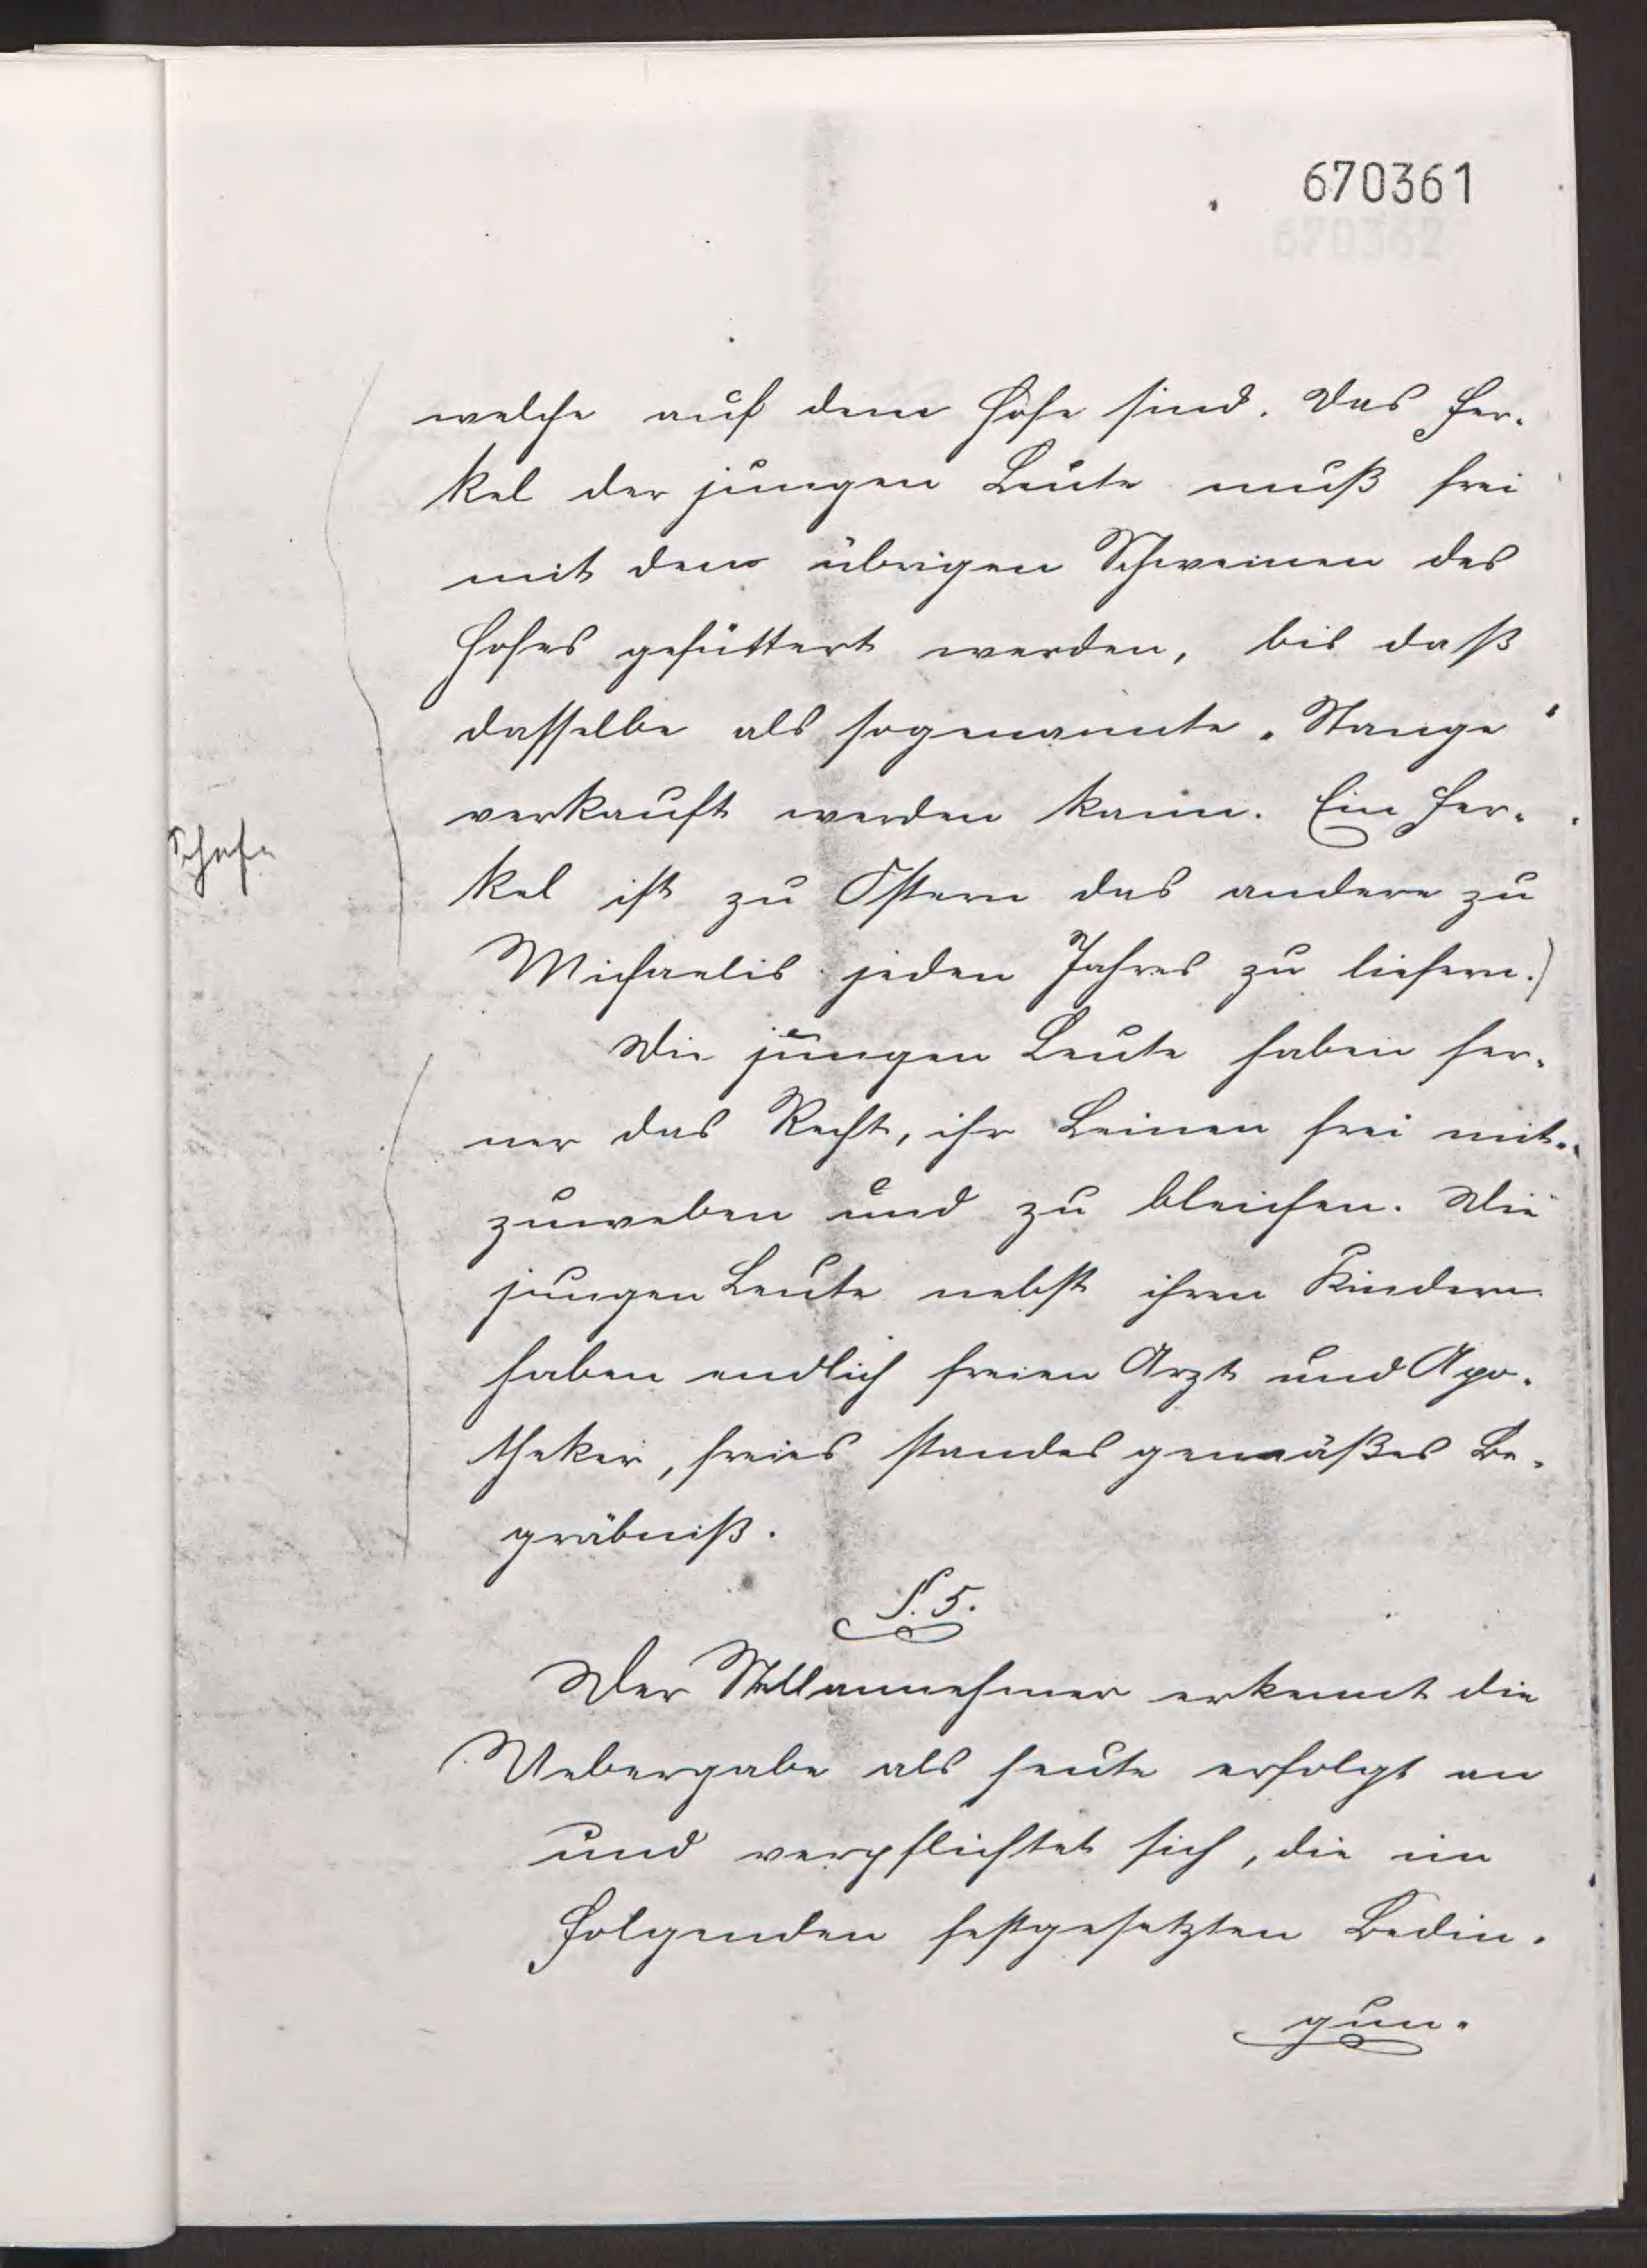 670361
welche auf dem Hofe sind. Das Fer-
kel der jungen Leute muß frei
mit den übrigen Schweinen des
Hofes gefüttert werden, bis daß
dasselbe als sogenannte „Stange“
verkauft werden kann. Ein Fer-
kel ist zu Ostern das andere zu
Michaelis jeden Jahres zu liefern.)
Die jungen Leute haben fer-
ner das Recht, ihr Leinen frei mit-
zuweben und zu bleichen. Die
jungen Leute nebst ihren Kindern
haben endlich freien Arzt und Apo-
theker, freies standesgemäßes Be-
gräbniß.
§. 5.
Der Stellannehmer erkennt die
Uebergabe als heute erfolgt an
und verpflichtet sich, die im
Folgenden festgesetzten Bedin-
gun-
Schafe